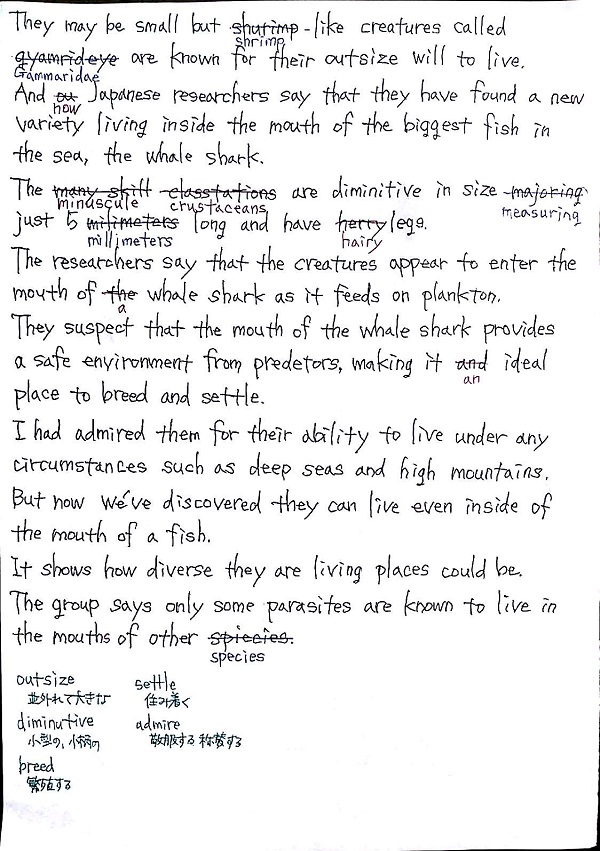 They may be small but shurimp -like creatures called
shrimp
gyamrideye are known for their outsize will to live.
Gammaridae
And ou Japanese researchers say that they have found a new
now
variety living inside the mouth of the biggest fish in
the sea, the whale shark.
The many skill classtations are diminitive in size majoring
minuscule crustaceans measuring
just 5 milimeters long and have herry legs.
millimeters hairy
The researchers say that the creatures appear to enter the
mouth of the whale shark as it feeds on plankton.
a
They suspect that the mouth of the whale shark provides
a safe environment from predetors, making it and ideal
an
place to breed and settle.
I had admired them for their ability to live under any
circumstances such as deep seas and high mountains.
But now we've discovered they can live even inside of
the mouth of a fish.
It shows how diverse they are living places could be.
The group says only some parasites are known to live in
the mouths of other spiecies.
species
outsize settle
並外れて大きな 住み着く
diminutive admire
小型の、小柄の 敬服する 称賛する
breed
繁殖する